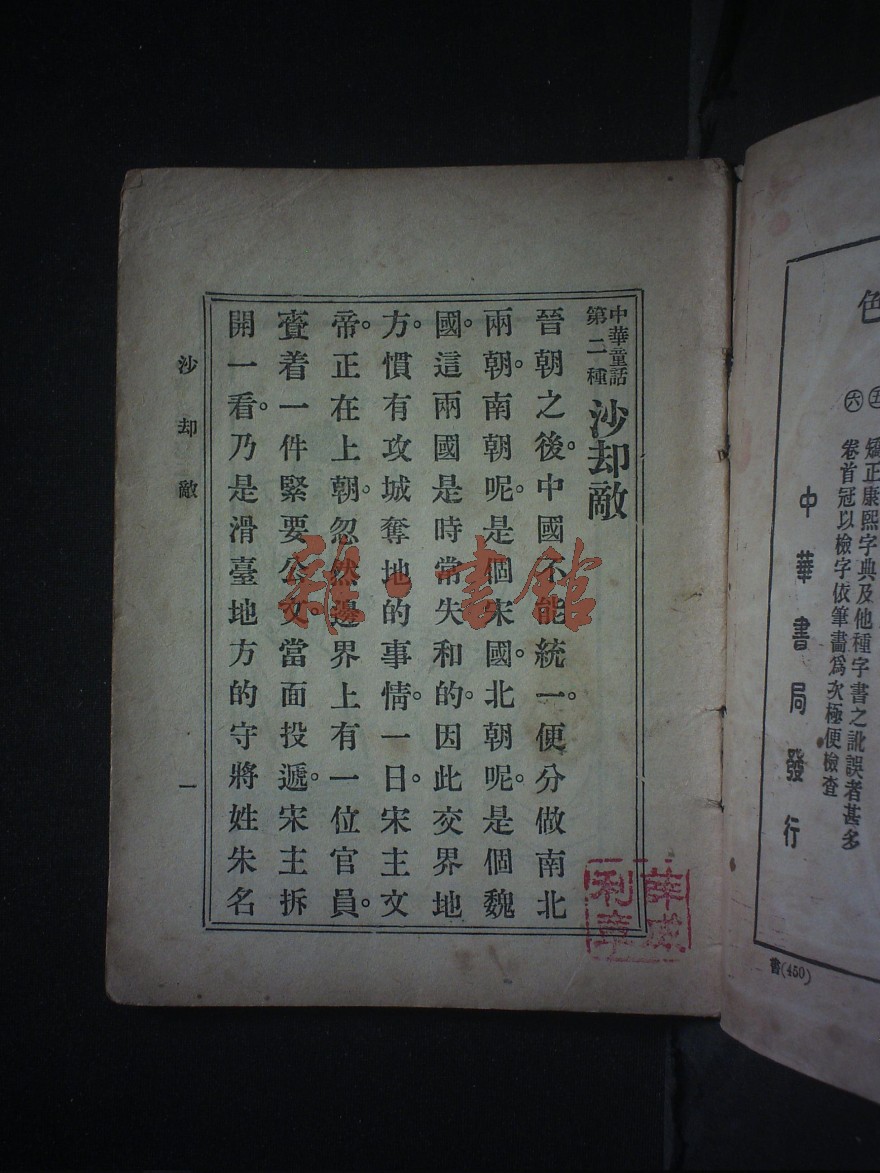 色
五
六
矯正康熙字典及他種字書之訛誤者甚多
卷首冠以檢字依筆畫爲次極便檢查
中華書局發行
書(450)
中華童話
第二種
沙却敵
晉朝之後。中國不能統一。便分做南北
兩朝。南朝呢。是個宋國。北朝呢。是個魏
國。這兩國是時常失和的。因此交界地
方。慣有攻城奪地的事情。一日。宋主文
帝。正在上朝。忽然邊界上有一位官員。
賫着一件緊要公文。當面投遞。宋主拆
開一看。乃是滑臺地方的守將姓朱名
沙却敵
一
雜·書館